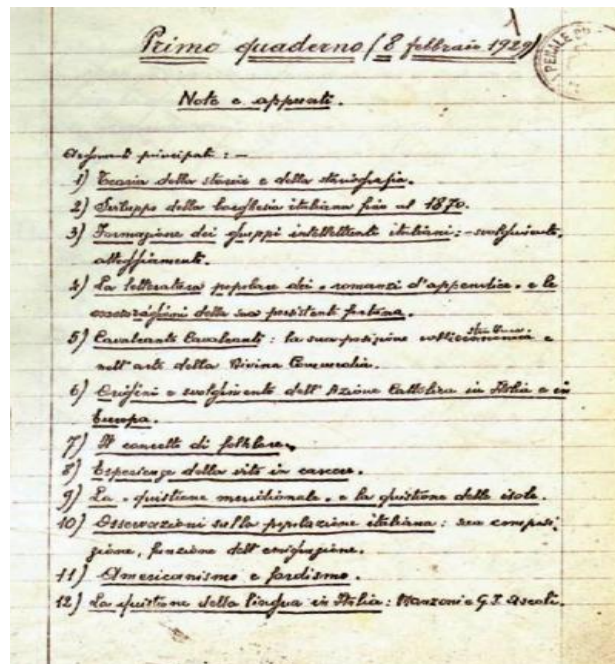 1
Primo quaderno (8 febbraio 1929)
PENALE
Note e appunti.
Argomenti principali: —
1) Teoria della storia e della storiografia.
2) Sviluppo della borghesia italiana fino al 1870.
3) Formazione dei gruppi intellettuali italiani: - svolgimento,
atteggiamenti.
4) La letteratura popolare dei "romanzi d'appendice" e le
ragioni della sua persistente fortuna.
5) Cavalcante Cavalcanti: la sua posizione nella struttura e
nell'arte della Divina Commedia.
6) Origini e svolgimento dell'Azione Cattolica in Italia e in
Europa.
7) Il concetto di folklore.
8) Esperienze della vita in carcere.
9) La "quistione meridionale" e la quistione delle isole.
10) Osservazioni sulla popolazione italiana: sua composi-
zione, funzione dell'emigrazione.
11) Americanismo e fordismo.
12) La quistione della lingua in Italia: Manzoni e G. I. Ascoli.